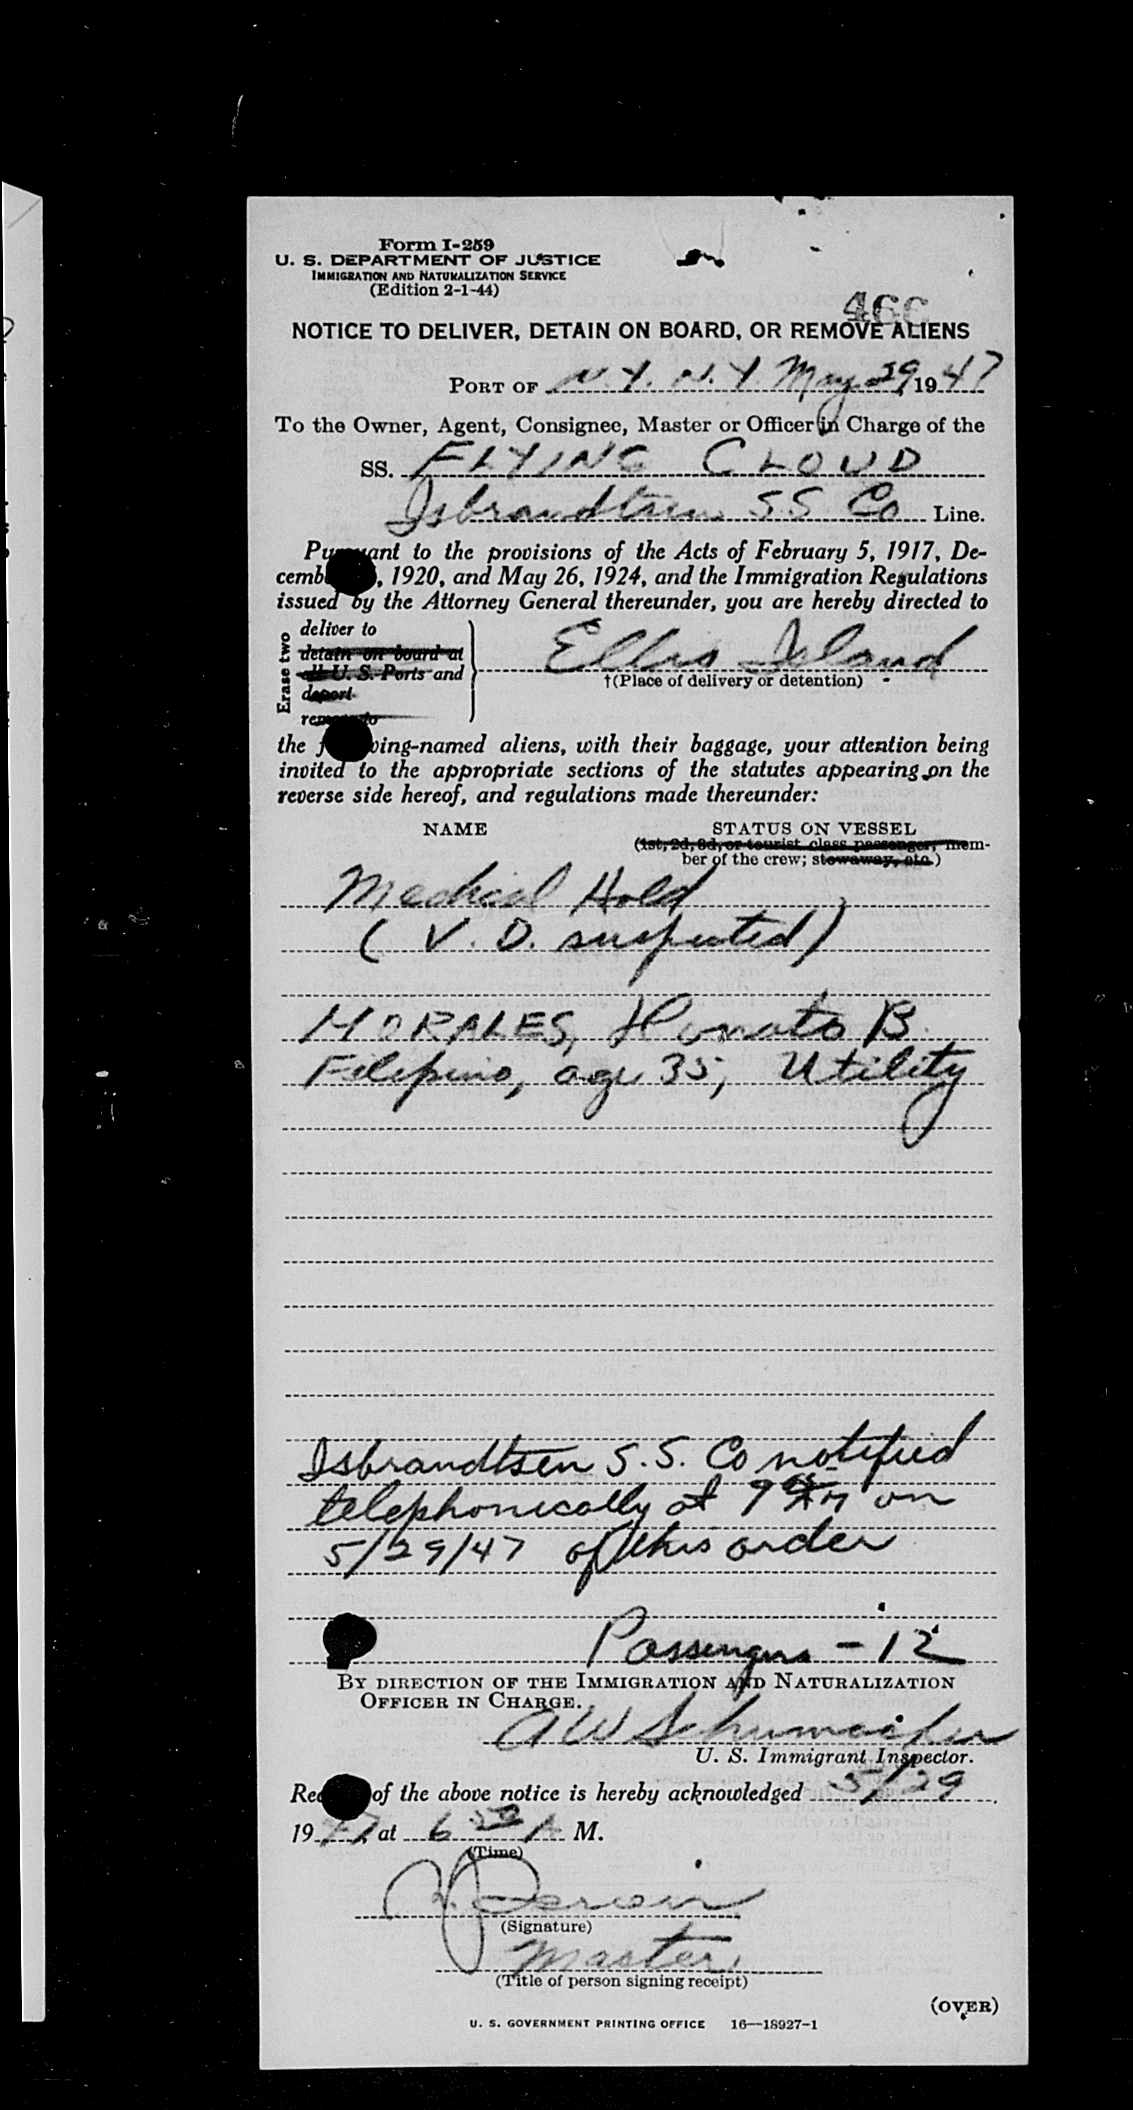 Form I-259
U. S. DEPARTMENT OF JUSTICE
IMMIGRATION AND NATURALIZATION SERVICE
(Edition 2-1-44)
466
NOTICE TO DELIVER, DETAIN ON BOARD, OR REMOVE ALIENS
PORT OF N. Y. N. Y. May 29, 1947
To the Owner, Agent, Consignee, Master or Officer in Charge of the
SS. FLYING CLOUD
Isbrandtsen S.S. Co Line.
Pursuant to the provisions of the Acts of February 5, 1917, De-
cember , 1920, and May 26, 1924, and the Immigration Regulations
issued by the Attorney General thereunder, you are hereby directed to
Erase two
deliver to
detain on board at
all U. S. Ports and
deport
remove to
Ellis Island
†(Place of delivery or detention)
the following-named aliens, with their baggage, your attention being
invited to the appropriate sections of the statutes appearing on the
reverse side hereof, and regulations made thereunder:
NAME STATUS ON VESSEL
(1st, 2d, 3d, or tourist class passenger; mem-
ber of the crew; stowaway, etc.)
Medical Hold
(V. D. suspected)
MORALES, B.
Filipino, age 35, Utility
Isbrandtsen S. S. Co notified
telephonically at 9 AM on
5/29/47 of this order
Passengers - 12
BY DIRECTION OF THE IMMIGRATION AND NATURALIZATION
OFFICER IN CHARGE.
A W Schumacher
U. S. Immigrant Inspector.
Receipt of the above notice is hereby acknowledged 5/29
1947, at 6 50 A M.
(Time)
(Signature)
Master
(Title of person signing receipt)
(OVER)
U. S. GOVERNMENT PRINTING OFFICE 16—18927-1